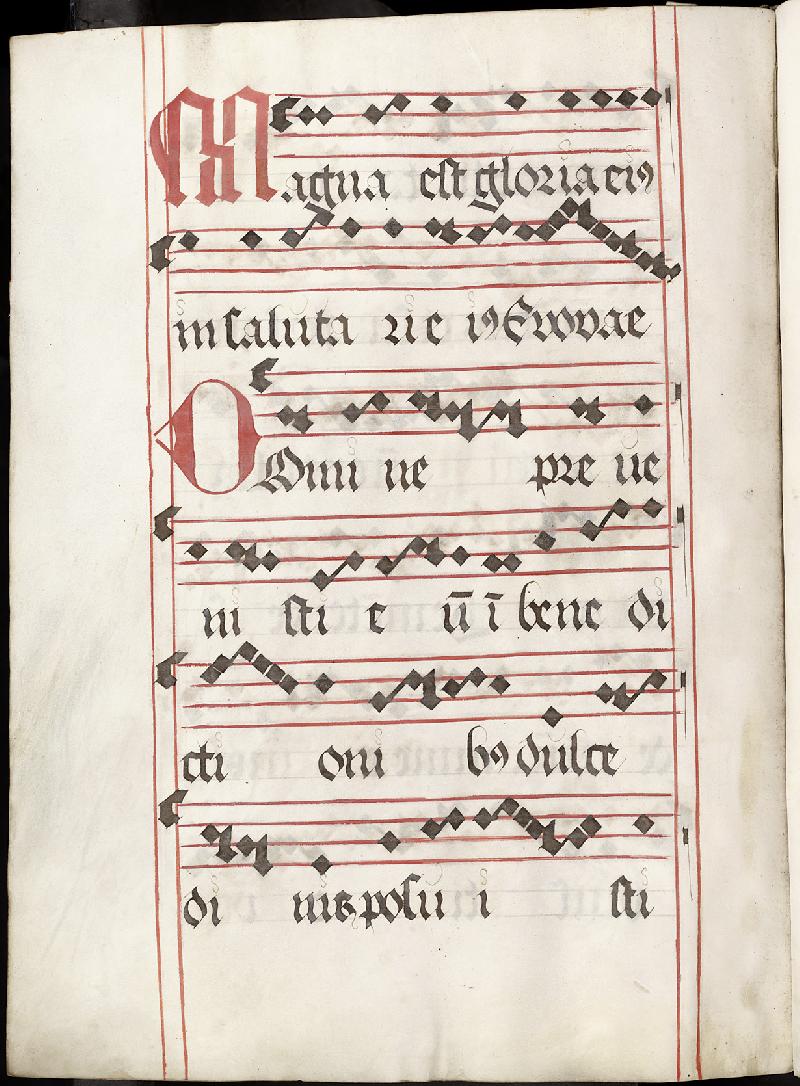 Magna est gloria eiꝯ
in saluta rie iꝯ Evovae
Domi ne pre ue
ni sti e ū ī bene di
cti oni bꝯ dulce
di nis posu i sti